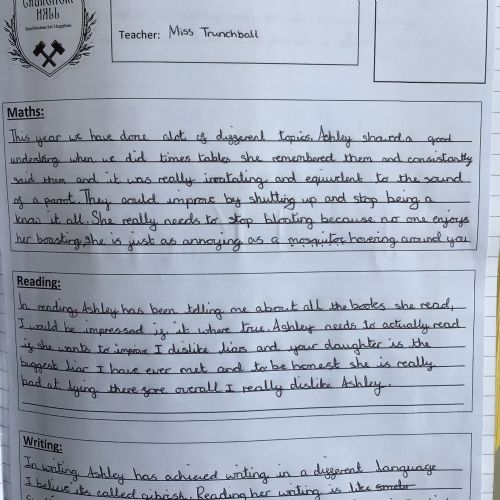 CRUNCHEM
HALL
Teacher: Miss Trunchball
Maths:
This year we have done alot of different topics. Ashley showd a good
undersking when we did times tables she remembered them and consistantly
said them and it was really irratating and equivelent to the sound
of a parot. They could improve by shutting up and stop being a
know it all. She really needs to stop bloating because no one enjoys
her boasting, she is just as annoying as a mosquitor hovering around you.
Reading:
In rending Ashley has been telling me about all the books she read,
I would be impressed if it where true. Ashley needs to actually read
if she wants to improve I dislike liars and your daughter is the
biggest liar I have ever met and to be honest she is really
bad at lying therefore overall I really dislike Ashley.
Writing:
In writing Ashley has achieved writing in a different language
I believe its called gibrish. Reading her writing is like